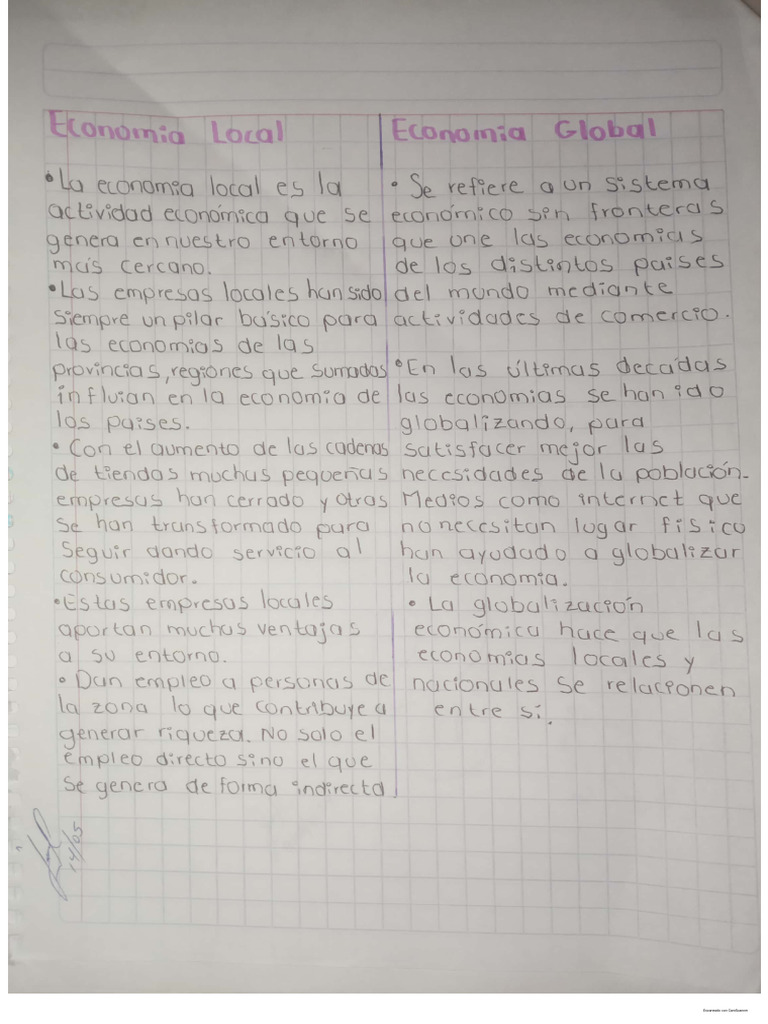 Economia Local
• La economia local es la
actividad económica que se
genera en nuestro entorno
más cercano.
• Las empresas locales han sido
siempre un pilar básico para
las economias de las
provincias, regiones que sumadas
influian en la economia de
los paises.
• Con el aumento de las cadenas
de tiendas muchas pequeñas
empresas han cerrado y otras
se han transformado para
seguir dando servicio al
consumidor.
• Estas empresas locales
aportan muchas ventajas
a su entorno.
• Dan empleo a personas de
la zona lo que contribuye a
generar riqueza. No solo el
empleo directo sino el que
se genera de forma indirecta.
Economia Global
• Se refiere a un sistema
económico sin fronteras
que une las economias
de los distintos paises
del mundo mediante
actividades de comercio.
• En las últimas decadas
las economias se han ido
globalizando, para
satisfacer mejor las
necesidades de la población.
Medios como internet que
no necesitan lugar fisico
han ayudado a globalizar
la economia.
• La globalización
económica hace que las
economias locales y
nacionales se relacionen
entre si.
14/05
Escaneado con CamScanner